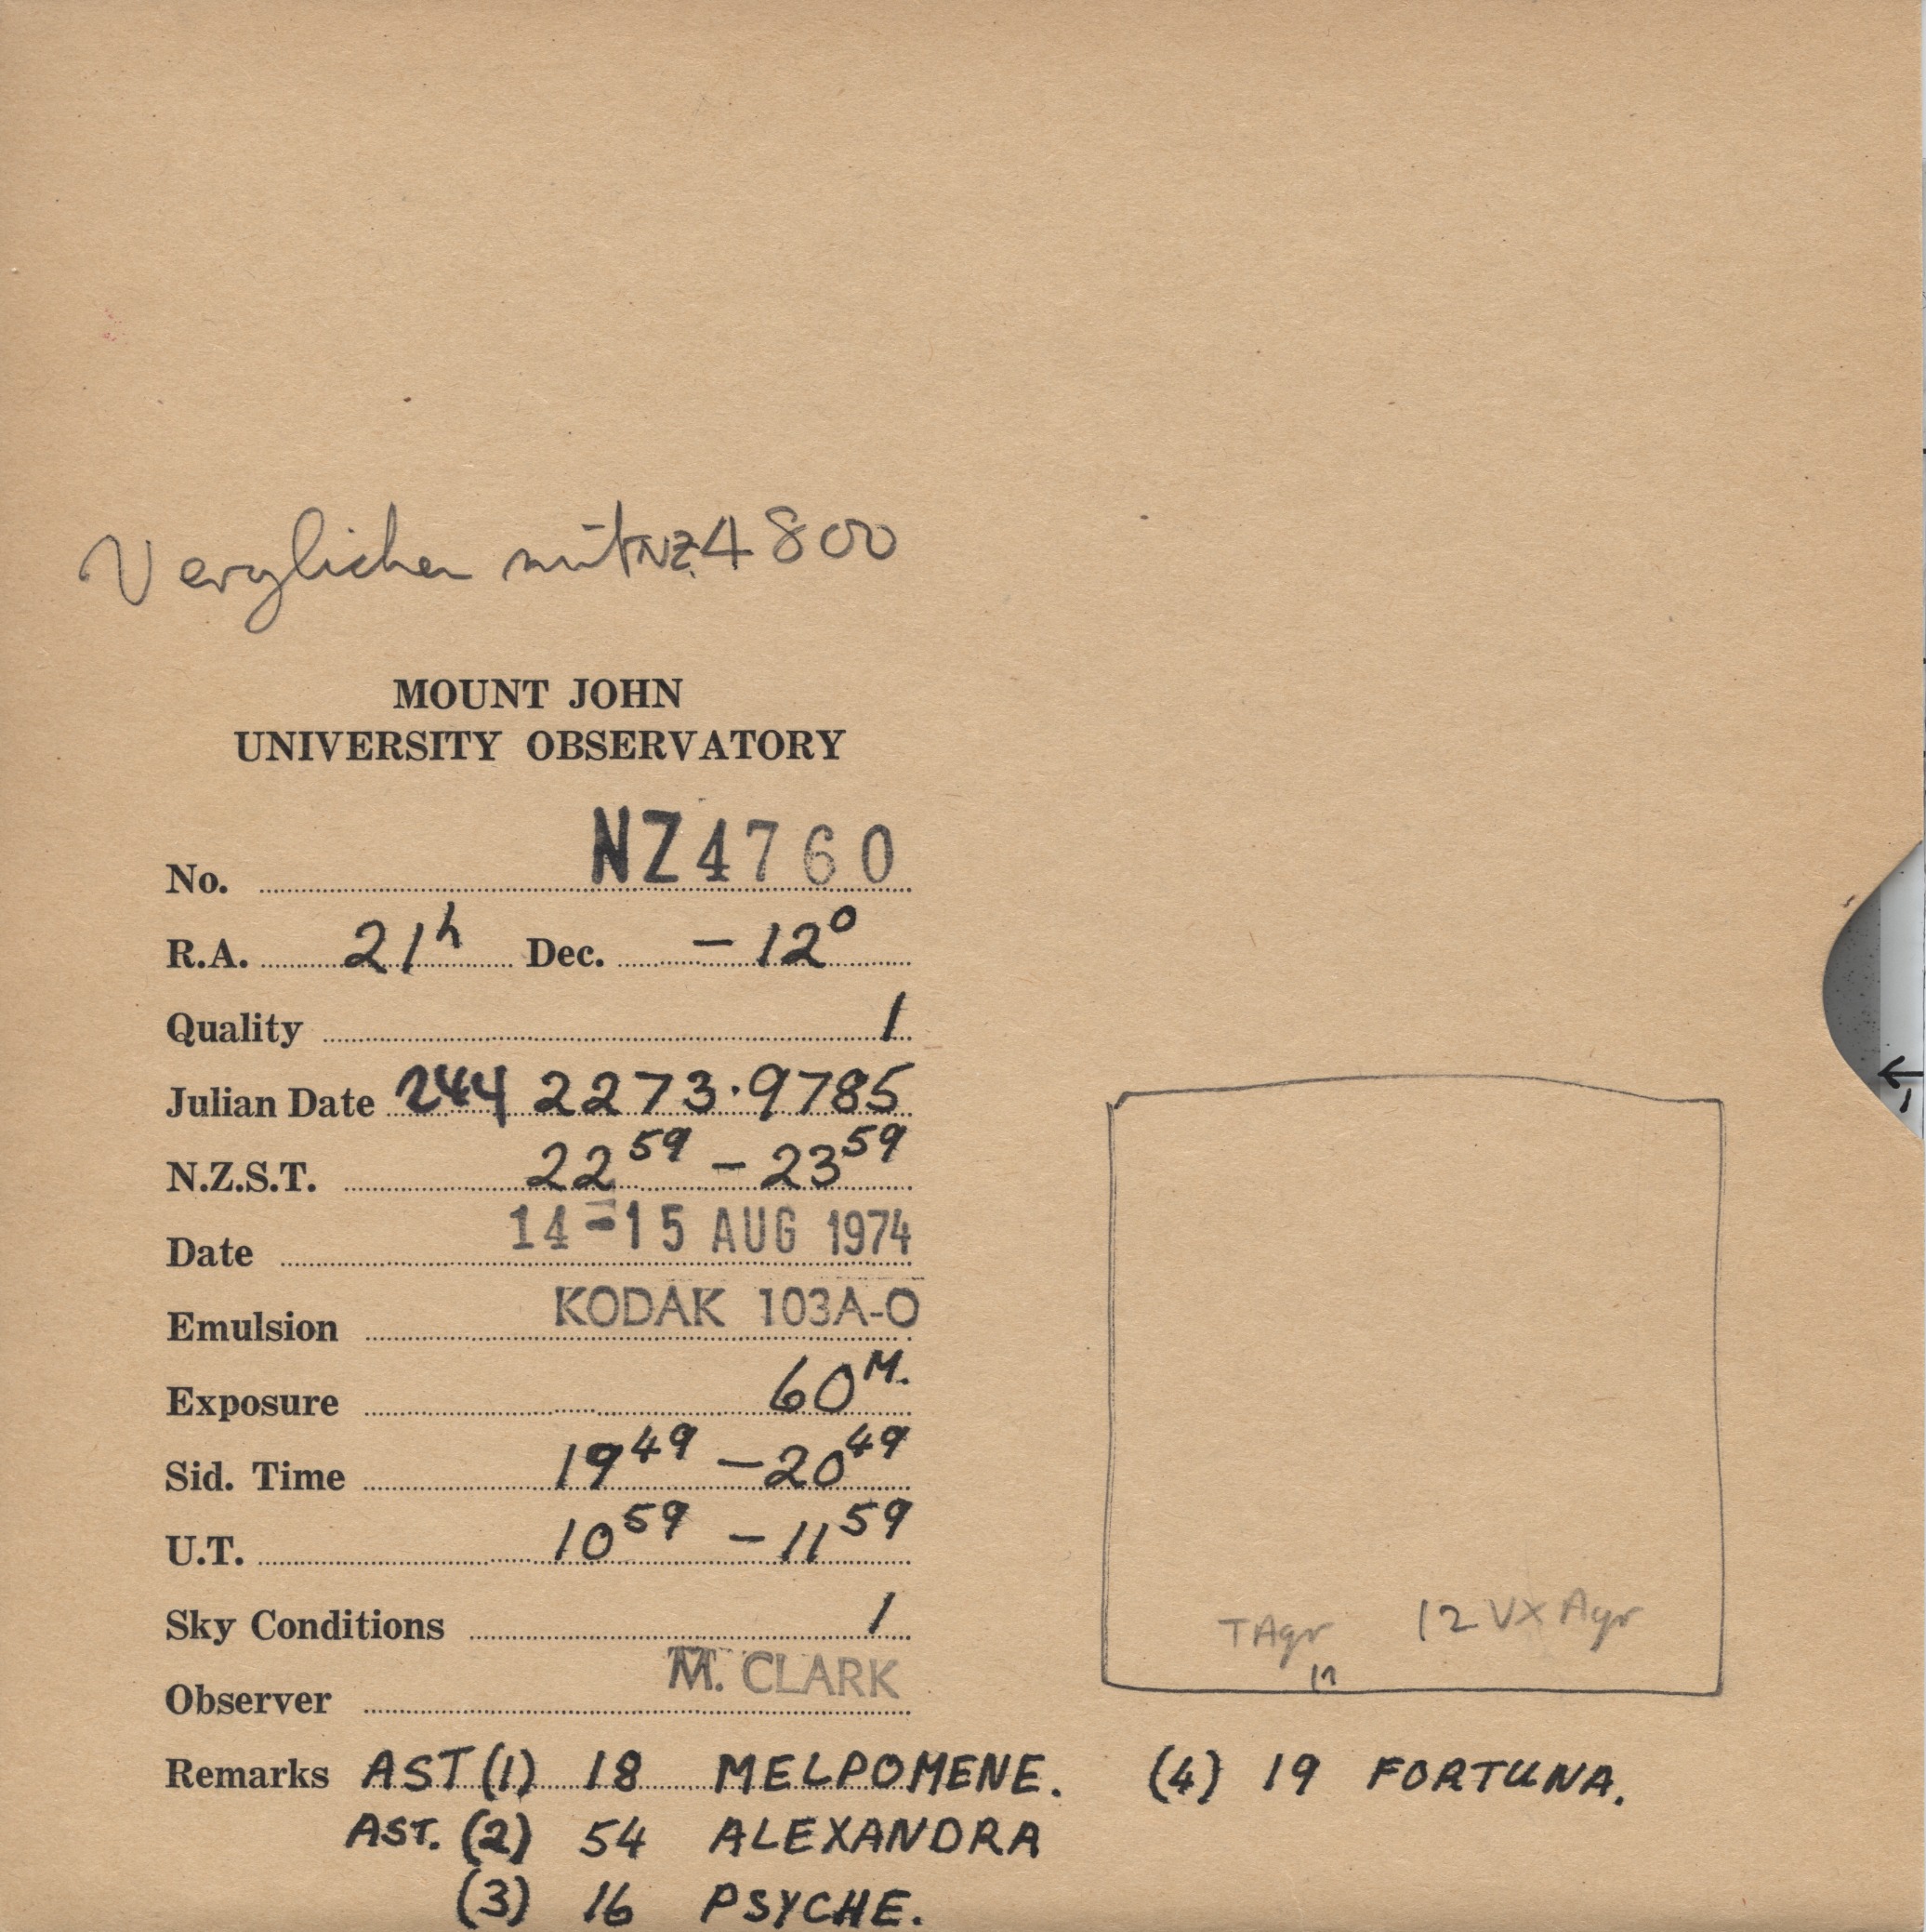 Verglichen mit NZ 4800
MOUNT JOHN
UNIVERSITY OBSERVATORY
No. NZ4760
R.A. 21h Dec. -12°
Quality 1
Julian Date 244 2273.9785
N.Z.S.T. 22 59 - 23 59
Date 14-15 AUG 1974
Emulsion KODAK 103A-O
Exposure 60 M.
Sid. Time 19 49 - 20 49
U.T. 10 59 - 11 59
Sky Conditions 1
TAqr 12 VX Aqr
Observer M. CLARK
Remarks AST (1) 18 MELPOMENE. (4) 19 FORTUNA.
AST. (2) 54 ALEXANDRA
(3) 16 PSYCHE.